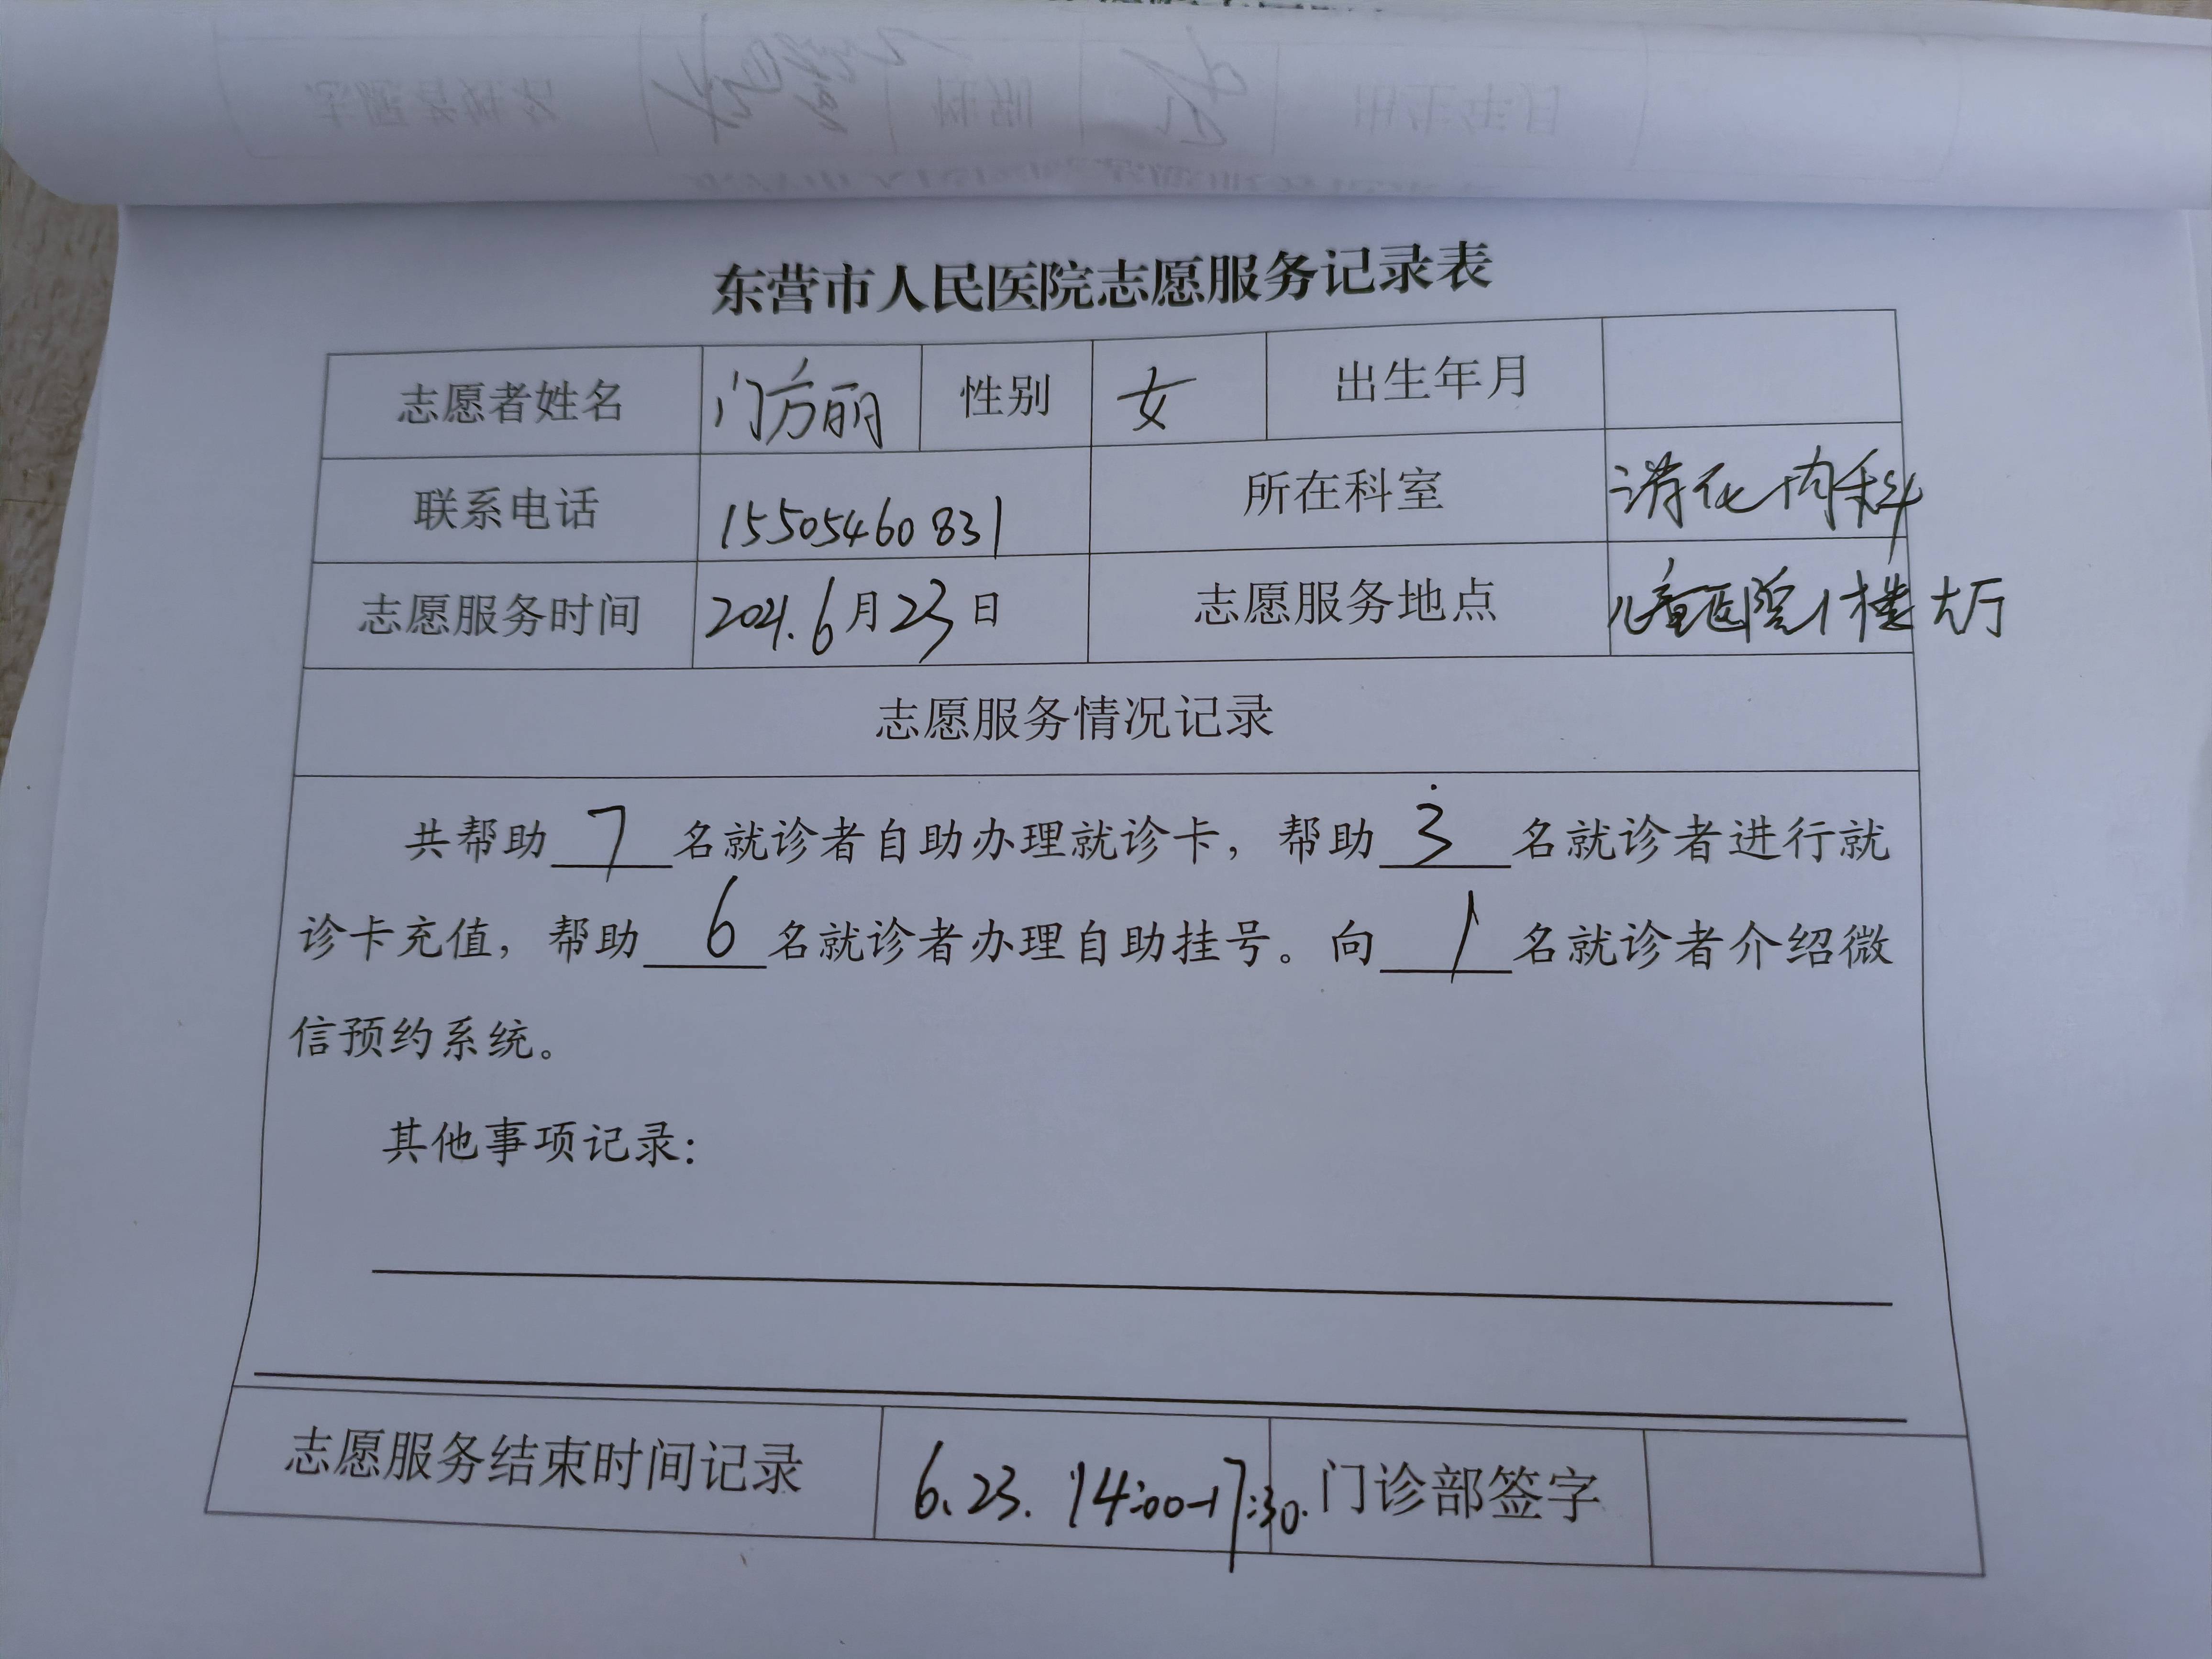 东营市人民医院志愿服务记录表
志愿者姓名 门方丽 性别 女 出生年月
联系电话 15505460831 所在科室 消化内科
志愿服务时间 2021.6月23日 志愿服务地点 儿童医院1楼大厅
志愿服务情况记录
共帮助 7 名就诊者自助办理就诊卡，帮助 3 名就诊者进行就
诊卡充值，帮助 6 名就诊者办理自助挂号。向 1 名就诊者介绍微
信预约系统。
其他事项记录：
志愿服务结束时间记录 6.23. 14:00-17:30. 门诊部签字